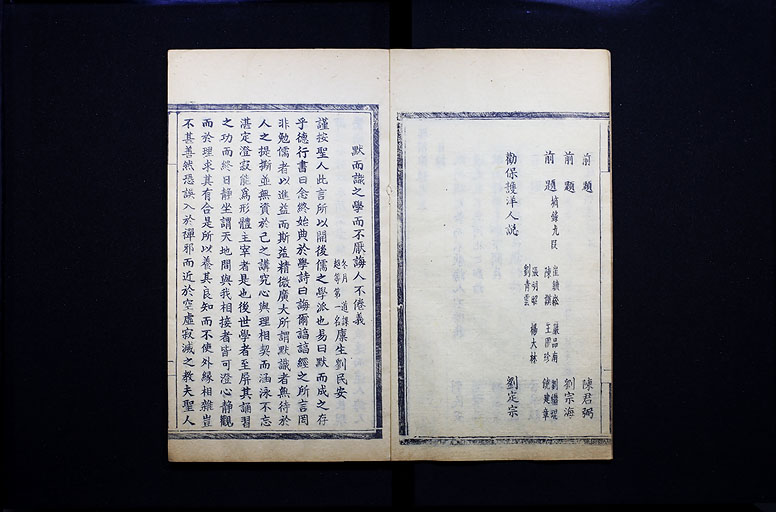 前題 陳君弼
前題 劉宗海
前題 摘錄九段 崔驥 嚴品南 劉繼堤
陳鏘 王際珍 饒建章
張明昭 楊大林
劉青雲
勸保護洋人說 劉定宗
默而識之學而不厭誨人不倦義
冬月 道課
超等第一名 廩生劉民安
謹按聖人此言所以開後儒之學派也易曰默而成之存
乎德行書曰念終始典於學詩曰誨爾諄諄經之所言罔
非勉儒者以進益而斯益精微廣大所謂默識者無待於
人之提撕並無資於己之講究心與理相契而涵泳不忘
湛定澄寂能為形體主宰者是也後世學者至屏其誦習
之功而終日靜坐謂天地間與我相接者皆可澄心靜觀
而於理求其有合是所以養其良知而不使外緣相雜豈
不甚善然恐誤入於禪邪而近於空虛寂滅之教夫聖人